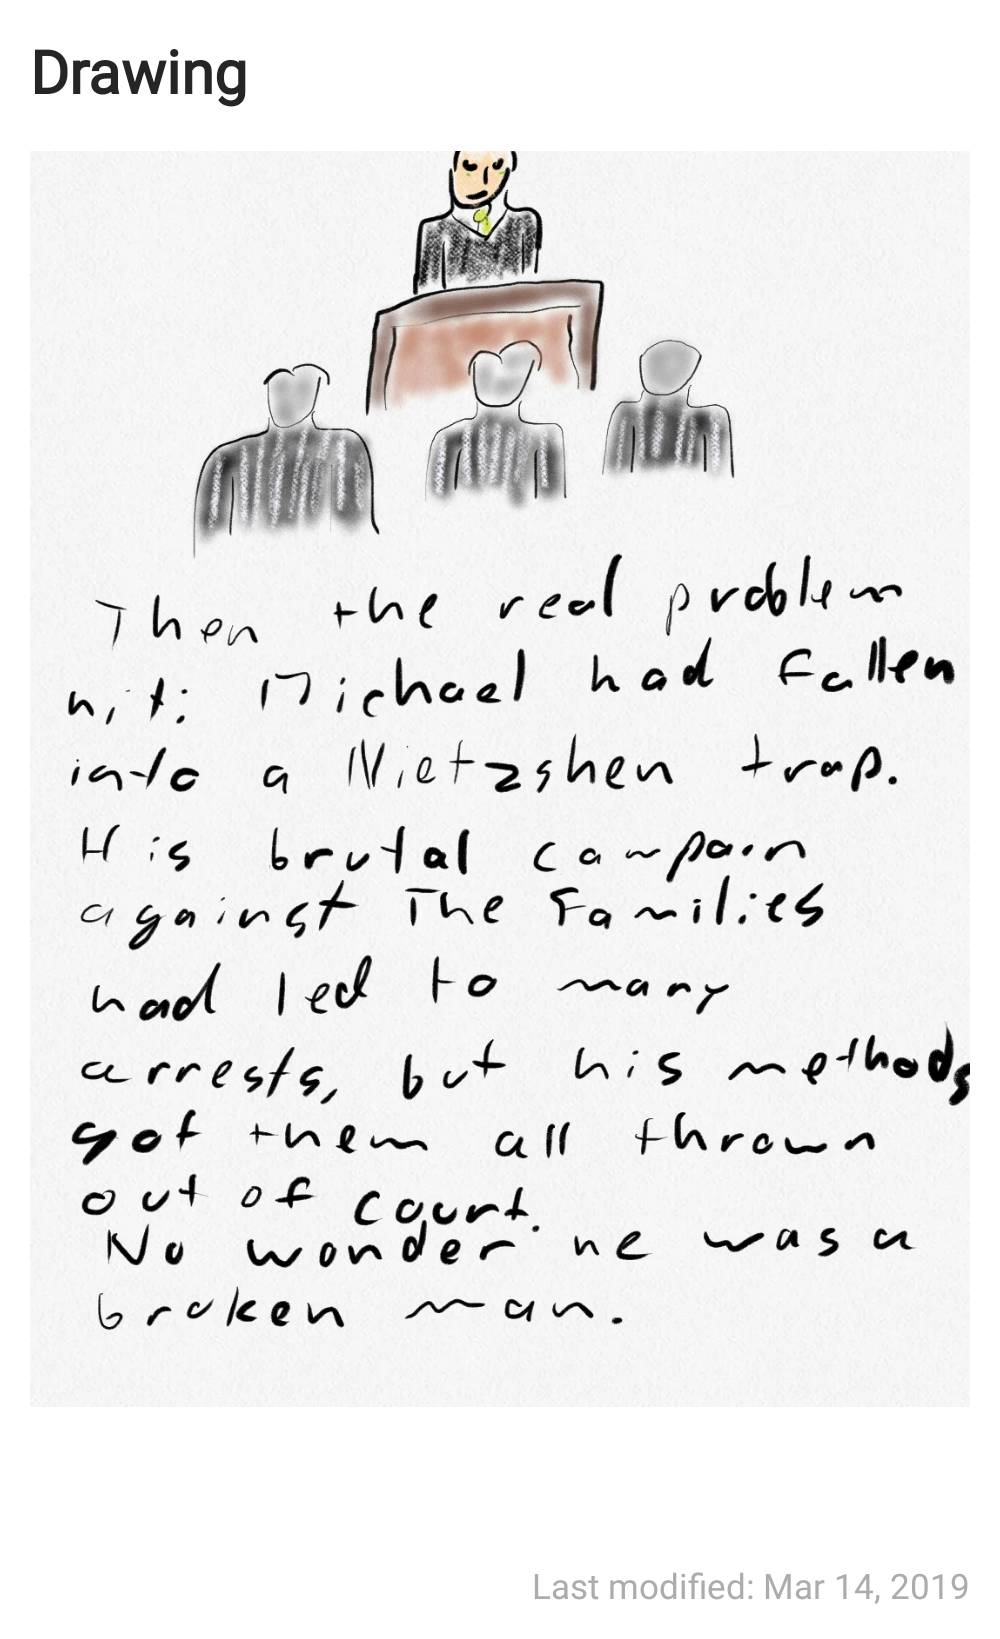 Drawing
Then the real problem
hit: Michael had fallen
into a Nietzshen trap.
His brutal campain
against The Families
had led to many
arrests, but his methods
got them all thrown
out of court.
No wonder he was a
broken man.
Last modified: Mar 14, 2019